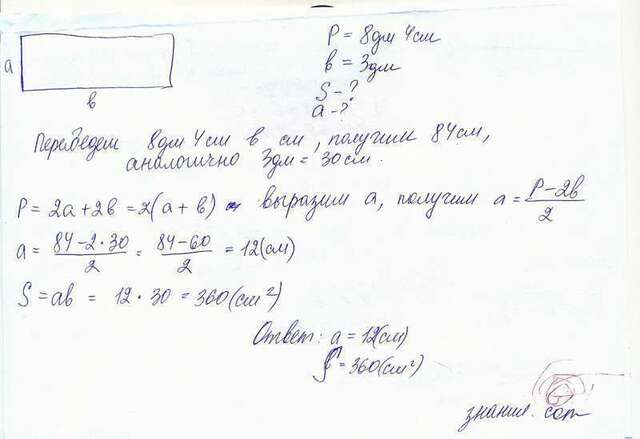 P = 8дм 4см
a
в = 3дм
S - ?
в
a - ?
Переведем 8дм 4см в см, получим 84см,
аналогично 3дм = 30см.
P = 2a + 2в = 2(a + в) выразим a, получим a = (P - 2в)/2
a = (84 - 2 · 30)/2 = (84 - 60)/2 = 12(см)
S = aв = 12 · 30 = 360(см²)
Ответ: a = 12(см)
S = 360(см²)
знание. com